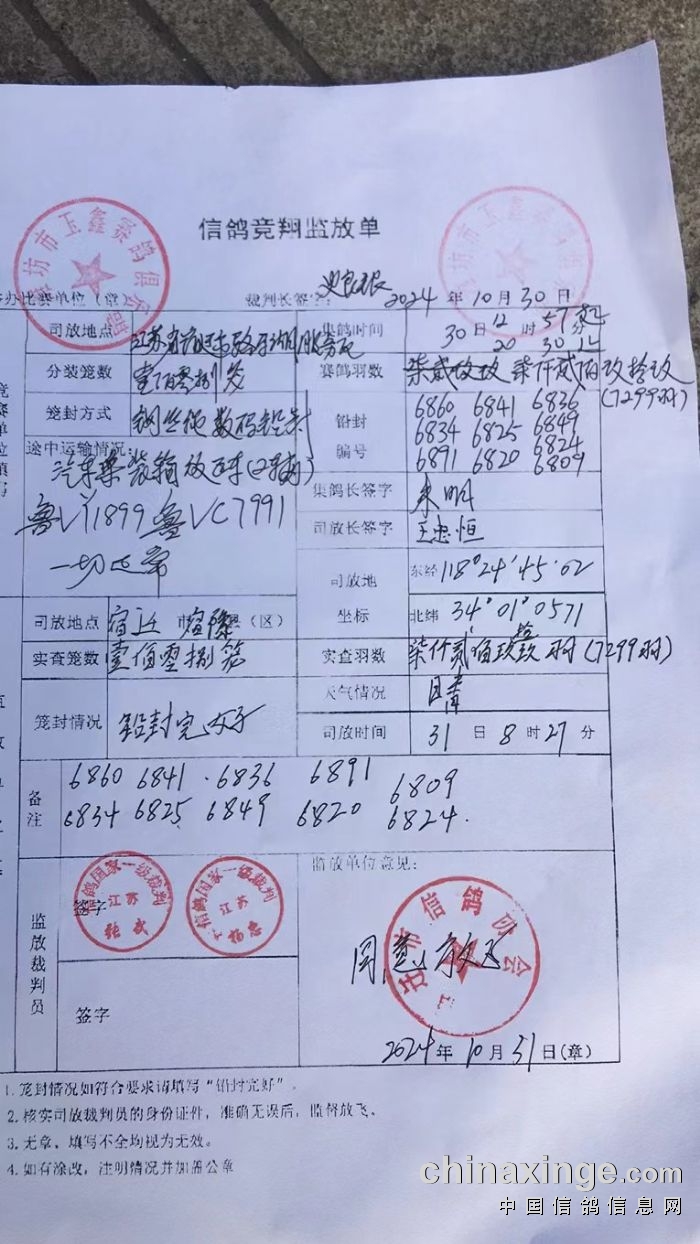 信鸽竞翔监放单
坊市玉鑫赛鸽俱乐
办比赛单位（章） 裁判长签字： 2024年10月30日
司放地点 江苏省 集鸽时间 30日12时57分起
20 30止
分装笼数 壹佰零捌笼 赛鸽羽数 柒贰玖玖 柒仟贰佰玖拾玖
(7299羽)
笼封方式 钢丝绳数码铅封 铅封编号 6860 6841 6836
6834 6825 6849
6891 6820 6824
6809
途中运输情况：
汽车集装箱放飞车(2车辆)
鲁V 1899 鲁VC7991
一切正常
集鸽长签字
司放长签字 王忠恒
司放地坐标 东经 118°24'45.02
北纬 34°01'0571
司放地点 宿迁 市 县（区）
实查笼数 壹佰零捌笼 实查羽数 柒仟贰佰玖拾玖羽(7299羽)
笼封情况 铅封完好 天气情况 晴
司放时间 31日8时27分
备注 6860 6841 6836 6891 6809
6834 6825 6849 6820 6824
监放裁判员 签字 监放单位意见：
信鸽国家一级裁判 江苏
信鸽国家一级裁判 江苏
同意放飞
市信鸽协会
签字
2024年10月31日(章)
1.笼封情况如符合要求请填写“铅封完好”。
2.核实司放裁判员的身份证件，准确无误后，监督放飞。
3.无章、填写不全均视为无效。
4.如有涂改，注明情况并加盖公章
chinaxinge.com
中国信鸽信息网